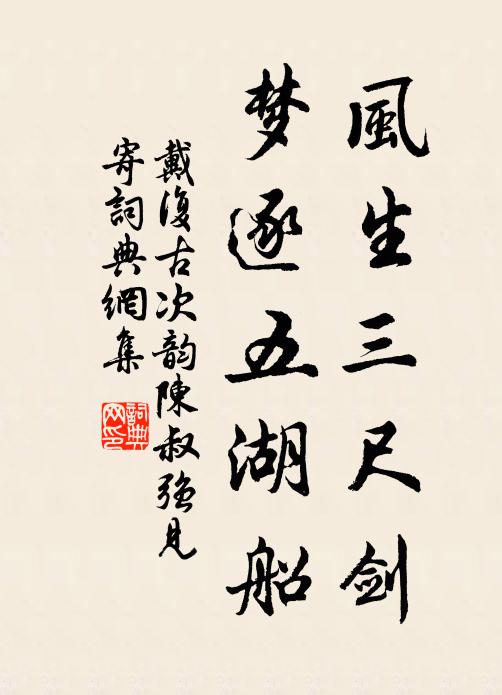 風生三尺剑
梦逐五湖船
戴復古次韵陳叔强見
寄詞典網集
詞典
网印